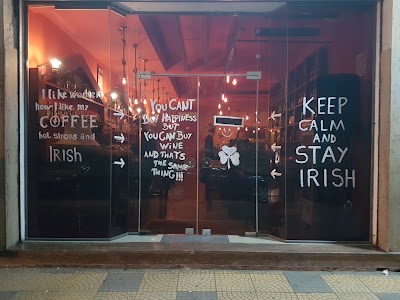 I like women
how I like my
COFFEE
hot strong and
IRISH
YOU CAN'T
BUY HAPPINESS
BUT
YOU CAN BUY
WINE
AND THAT'S
THE SAME
THING!!!
KEEP
CALM
AND
STAY
IRISH